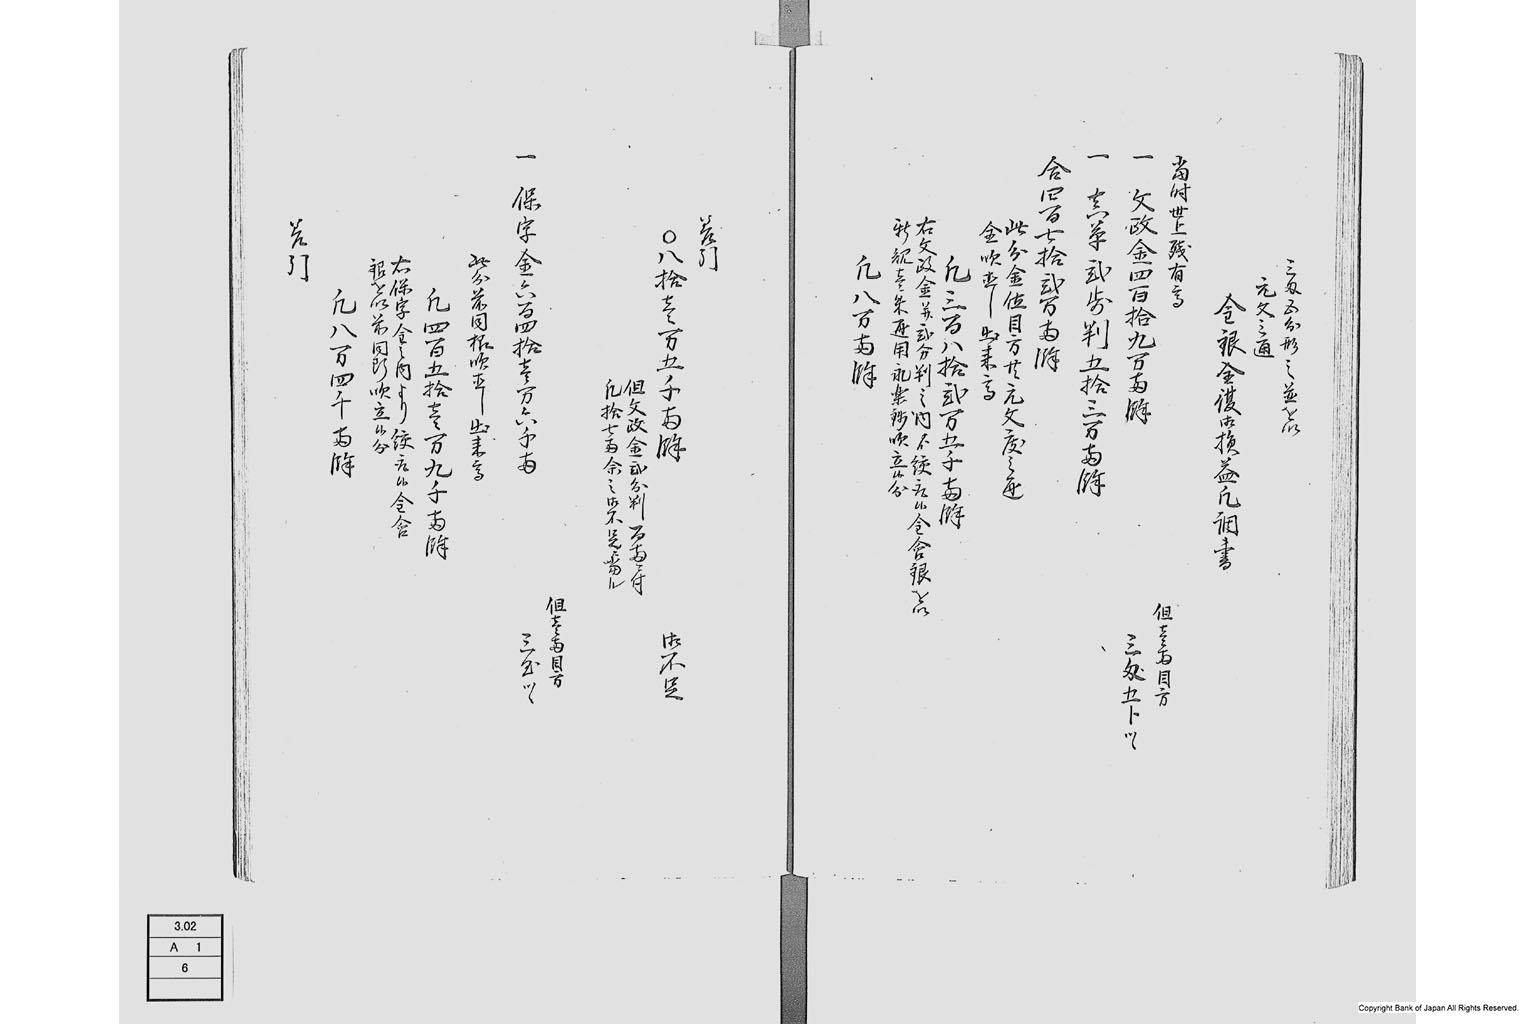 三匁五分形之並を以
元文之通
金銀吹替御損益凡調書
当時世上残有高
一 文政金四百拾九万両餘
但壱両目方
三匁五卜ツヽ
一 真草弐歩判五拾三万両餘
合四百七拾弐万両餘
此分金位目方共元文度之通
金吹直し出来高
凡三百八拾弐万五千両餘
右文政金并弐分判之内不絞立候金含銀を以
新規壱朱通用吹立候分
凡八万両餘
差引
〇八拾壱万五千両餘
御不足
但文政金弐分判百両ニ付
凡拾七両余之御不足ニ當ル
一 保字金六百四拾壱万六千両
但壱両目方
三匁ツヽ
此分前同様吹直し出来高
凡四百五拾壱万九千両餘
右保字金之内より絞立候金含
銀を以前同断吹立候分
凡八万四千両餘
差引
3.02
A 1
6
Copyright Bank of Japan All Rights Reserved.